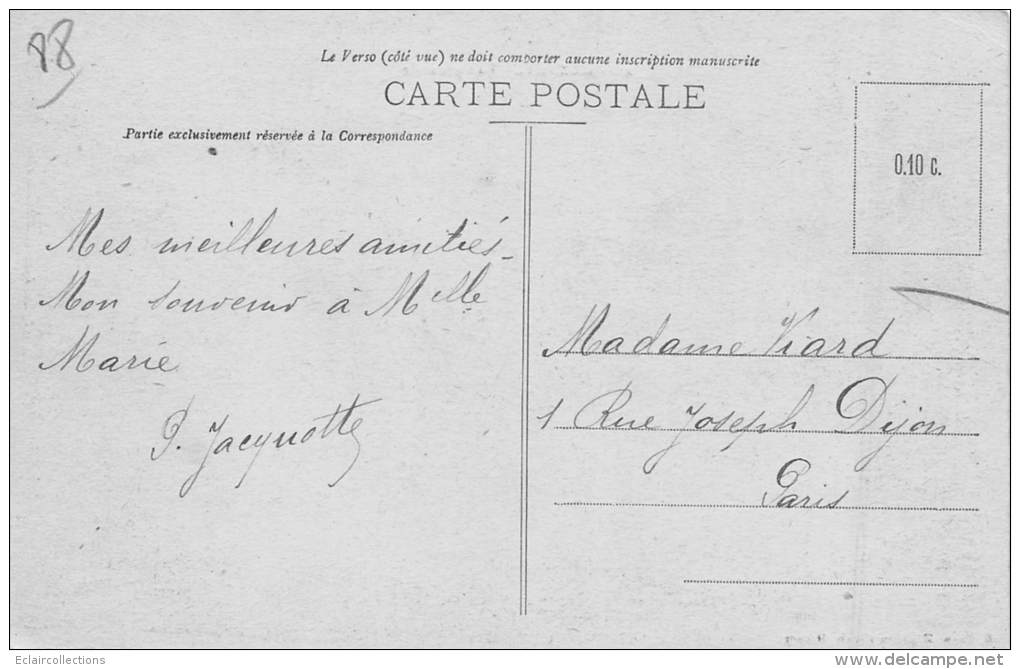 88
Le Verso (côté vue) ne doit comporter aucune inscription manuscrite
CARTE POSTALE
Partie exclusivement réservée à la Correspondance
0.10 c.
Mes meilleures amitiés_
Mon souvenir à Melle
Marie
P. Jacquotte
Madame Viard
1 Rue Joseph Dijon
Paris
Eclaircollections
www.delcampe.net